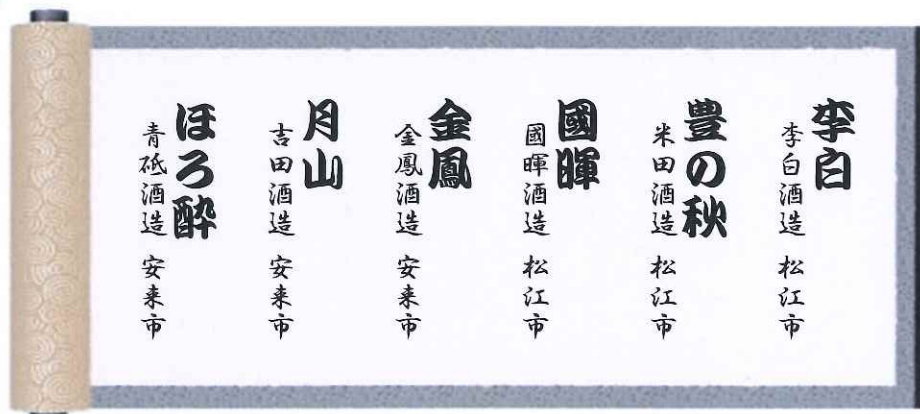 李白
李白酒造 松江市
豊の秋
米田酒造 松江市
國暉
國暉酒造 松江市
金鳳
金鳳酒造 安来市
月山
吉田酒造 安来市
ほろ酔
青砥酒造 安来市